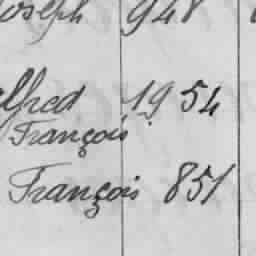 Joseph 948
Alfred 1954
François
François 851